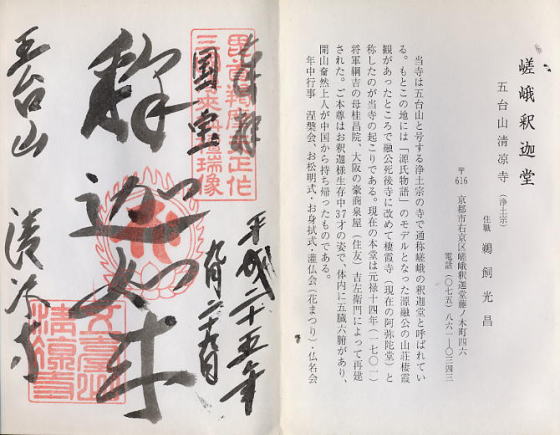 嵯峨釈迦堂
五台山清凉寺（浄土宗）
住職 鵜飼光昌
〒616 京都市右京区嵯峨釈迦堂藤ノ木町四六
電話（〇七五）八六一―〇三四三
当寺は五台山と号する浄土宗の寺で通称嵯峨の釈迦堂と呼ばれてい
る。もとこの地には「源氏物語」のモデルとなった源融公の山荘棲霞
観があったところで融公死後寺に改めて棲霞寺（現在の阿弥陀堂）と
称したのが当寺の起こりである。現在の本堂は元禄十四年（一七〇一）
将軍綱吉の母桂昌院、大阪の豪商泉屋（住友）吉左衛門によって再建
された。ご本尊はお釈迦様生存中37才の姿で、体内に五臓六腑があり、
開山奝然上人が中国から持ち帰ったものである。
年中行事 涅槃会、お松明式・お身拭式・灌仏会（花まつり）・仏名会
国宝
釈迦如来
平成二十五年
五台山
清凉寺